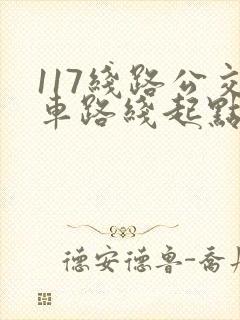 117綫路公交
車路綫起點
德安德鲁-喬